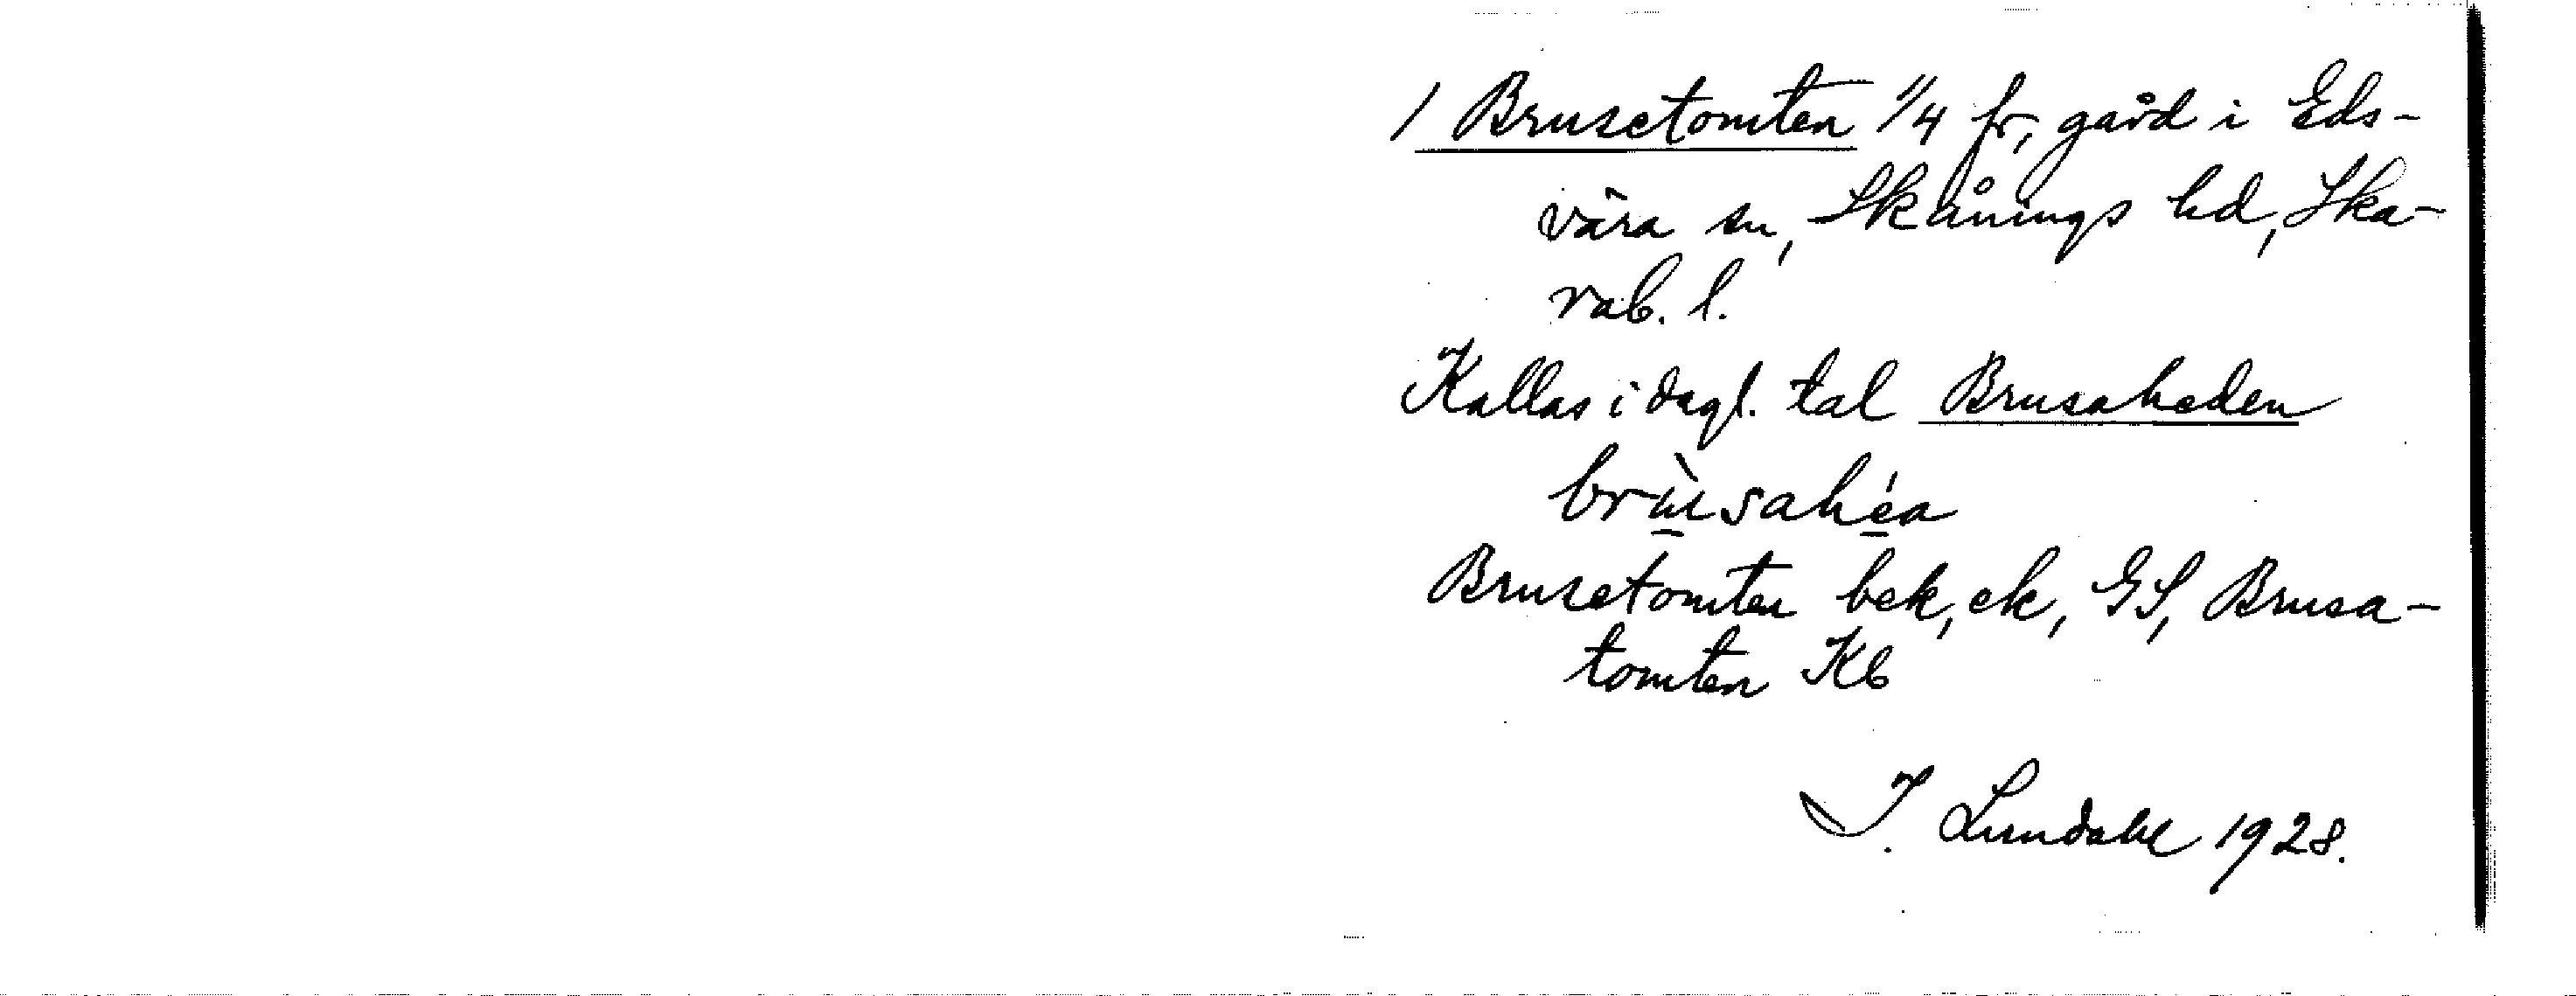 / Brusetomten 1/4 fr, gård i Eds-
vära sn, Skånings hd, Ska-
rab. l.
Kallas i dagl. tal Brusaheden
brùsahéa
Brusetomten bek, ek, GS, Brusa-
tomten Kb
I. Lundahl 1928.